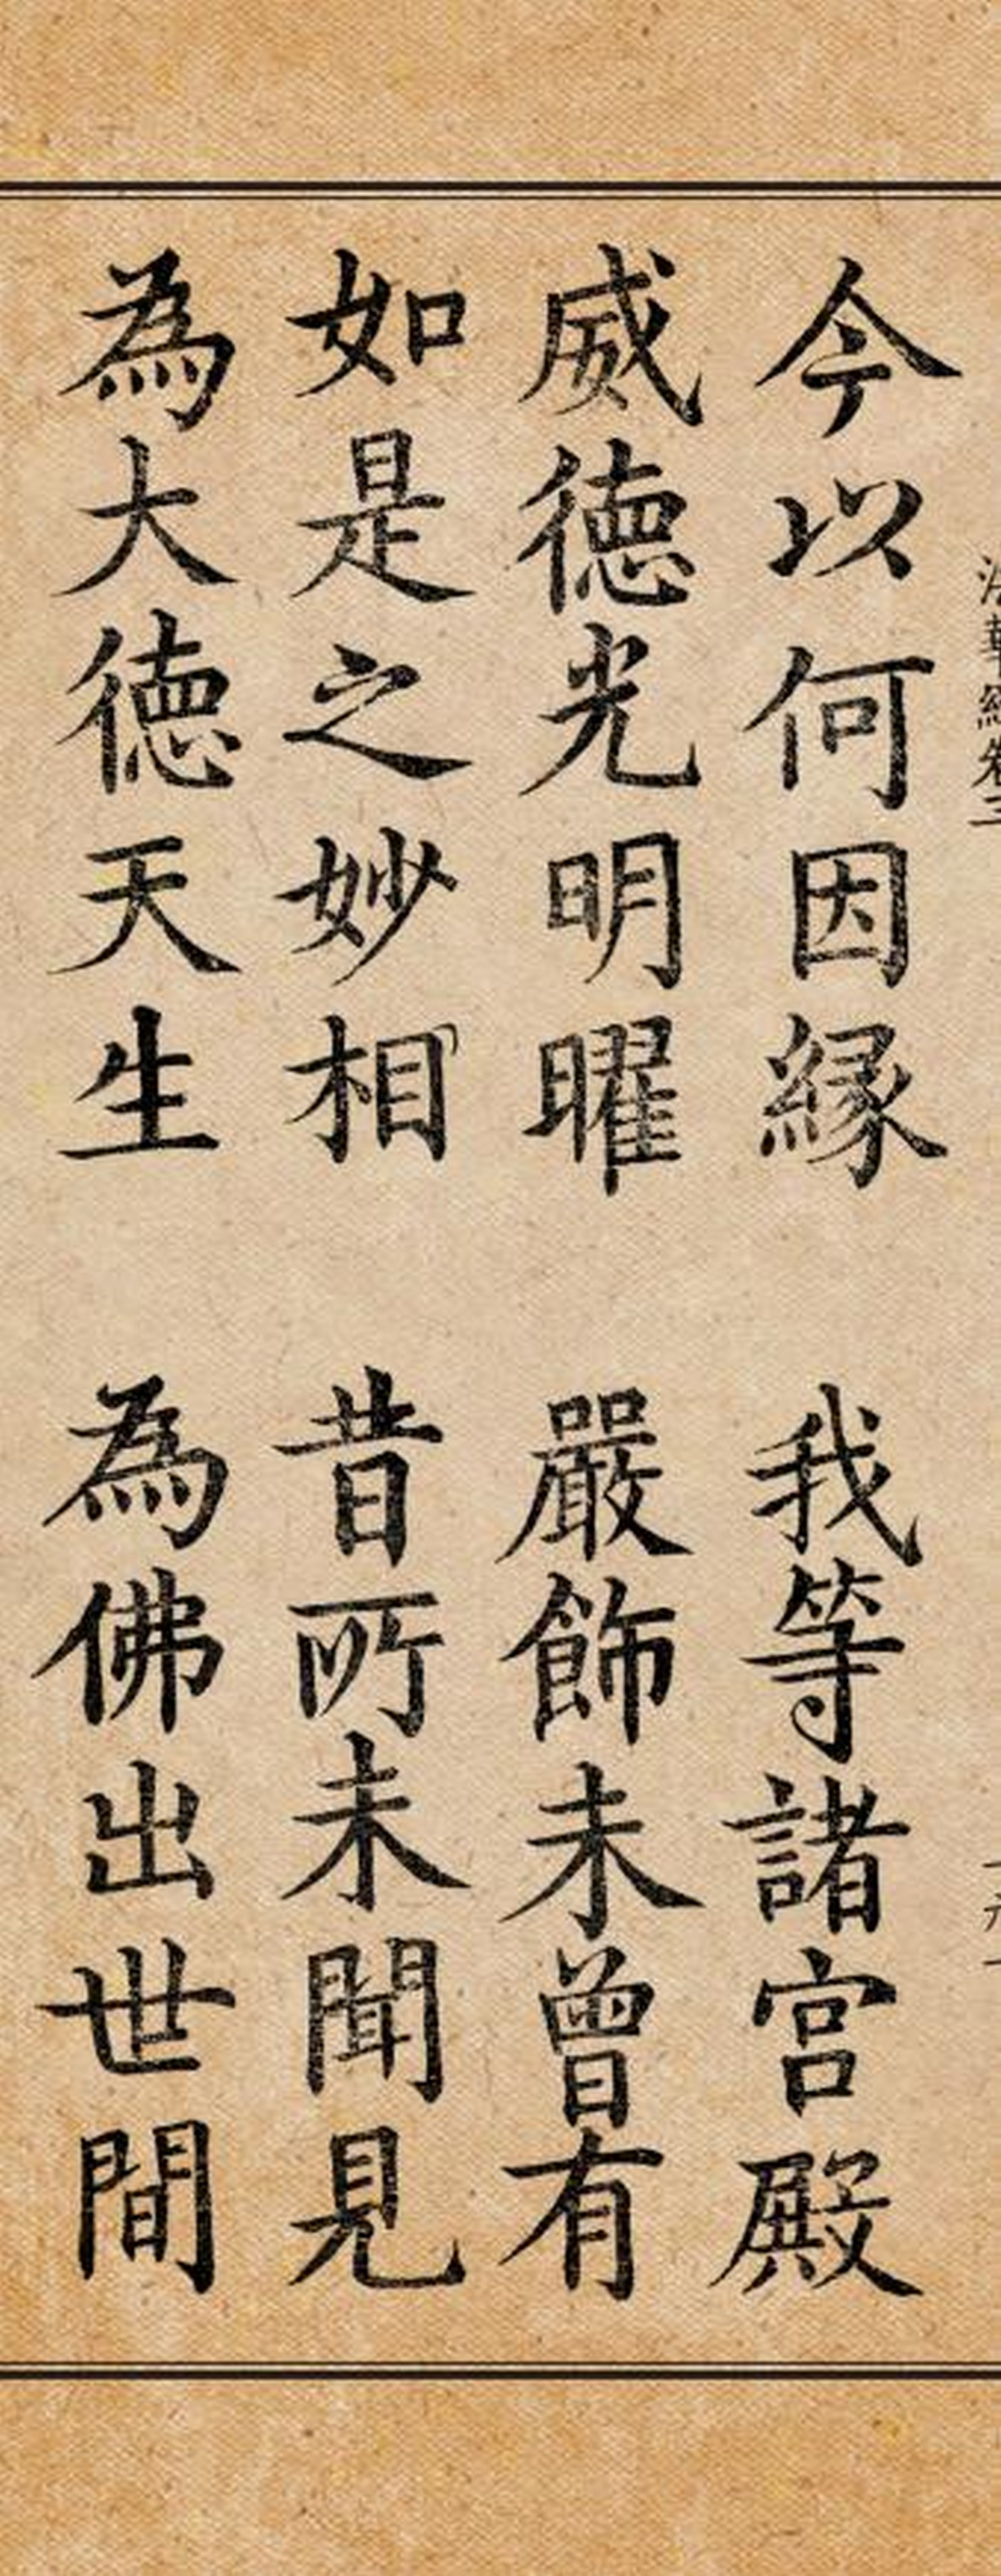 法華經卷三
今以何因緣 我等諸宮殿
威德光明曜 嚴飾未曾有
如是之妙相 昔所未聞見
為大德天生 為佛出世間